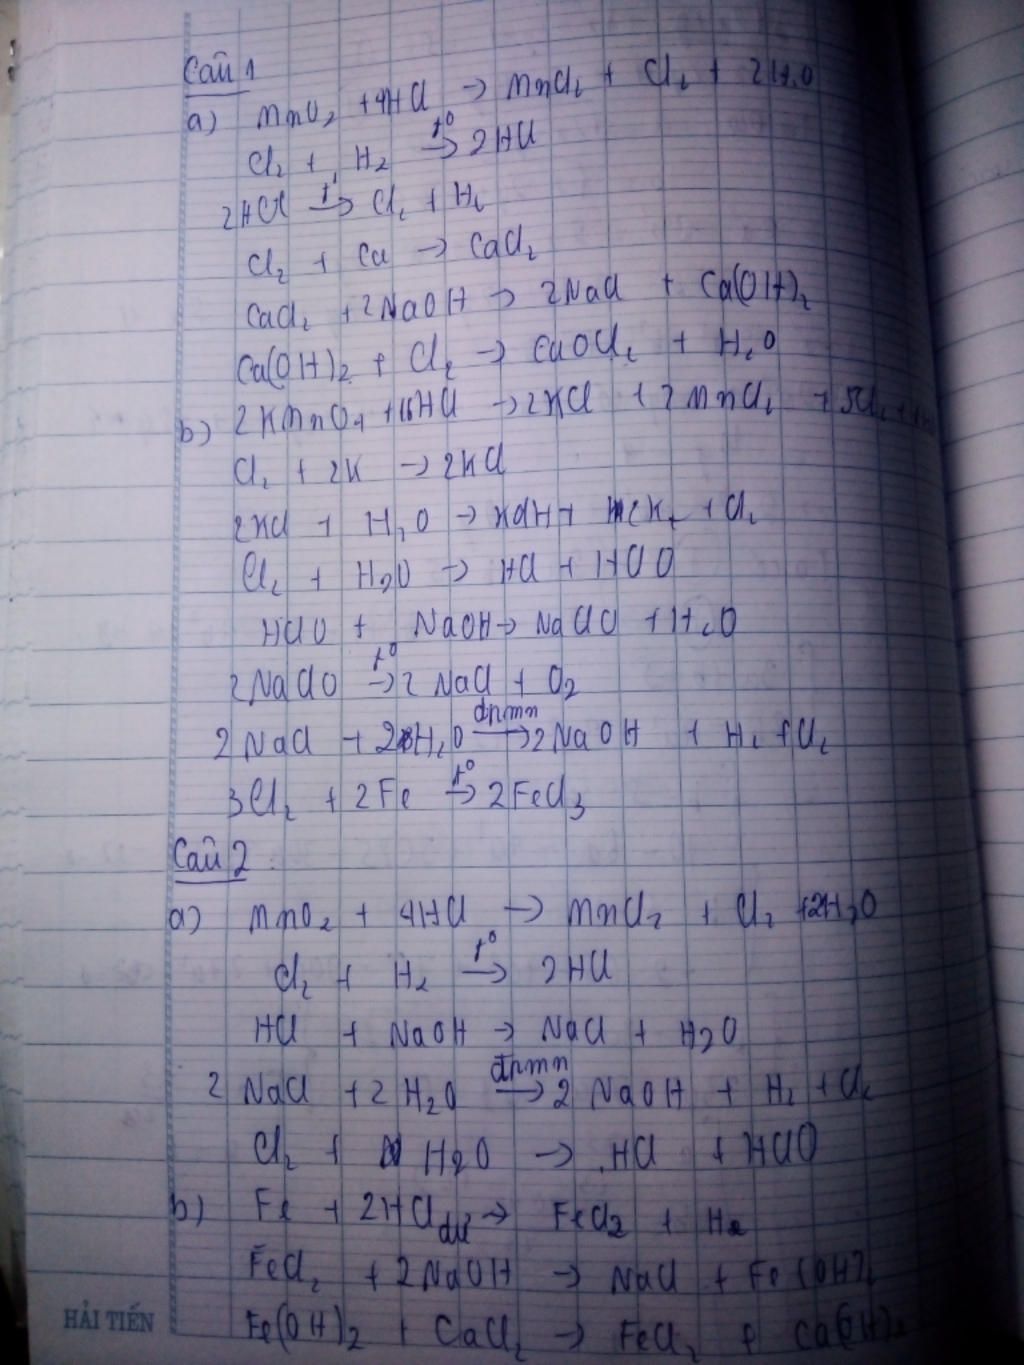 Câu 1
a) MnO2 + 4HCl → MnCl2 + Cl2 + 2H2O
Cl2 + H2 t°→ 2HCl
2HCl t°→ Cl2 + H2
Cl2 + Ca → CaCl2
CaCl2 + 2NaOH → 2NaCl + Ca(OH)2
Ca(OH)2 + Cl2 → CaOCl2 + H2O
b) 2KMnO4 + 16HCl → 2KCl + 2MnCl2 + 5Cl2
Cl2 + 2K → 2KCl
2KCl + H2O → + Cl2
Cl2 + H2O → HCl + HClO
HClO + NaOH → NaClO + H2O
2NaClO t°→ 2NaCl + O2
2NaCl + 2H2O đpmn→ 2NaOH + H2 + Cl2
3Cl2 + 2Fe t°→ 2FeCl3
Câu 2
a) MnO2 + 4HCl → MnCl2 + Cl2 + 2H2O
Cl2 + H2 t°→ 2HCl
HCl + NaOH → NaCl + H2O
2NaCl + 2H2O đpmn→ 2NaOH + H2 + Cl2
Cl2 + H2O → HCl + HClO
b) Fe + 2HCl → FeCl2 + H2
FeCl2 + 2NaOH → NaCl + Fe(OH)2
HẢI TIẾN
Fe(OH)2 + CaCl2 → FeCl2 + Ca(OH)2